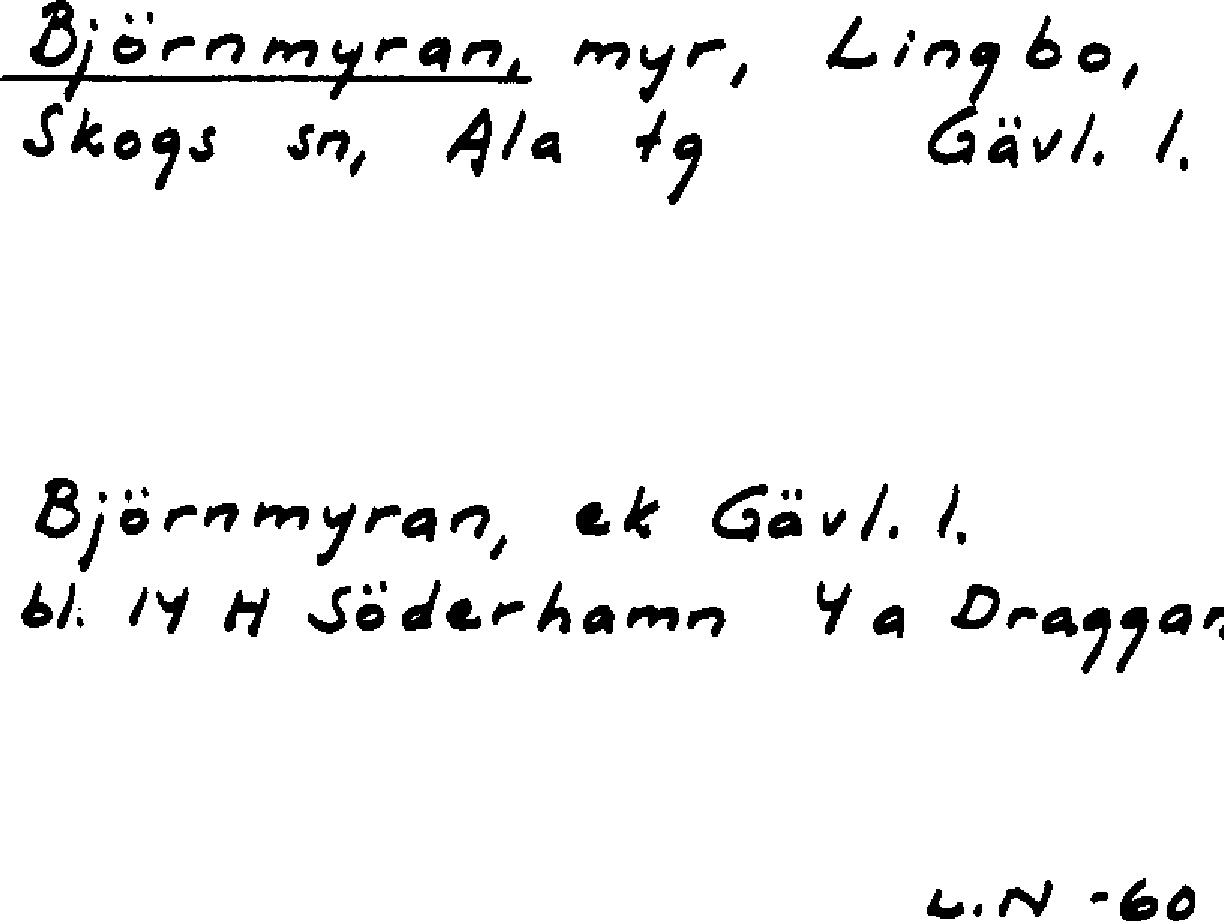 Björnmyran, myr, Lingbo,
Skogs sn, Ala tg Gävl. l.
Björnmyran, ek Gävl. l.
bl. 14 H Söderhamn 4 a Draggan
L.N -60